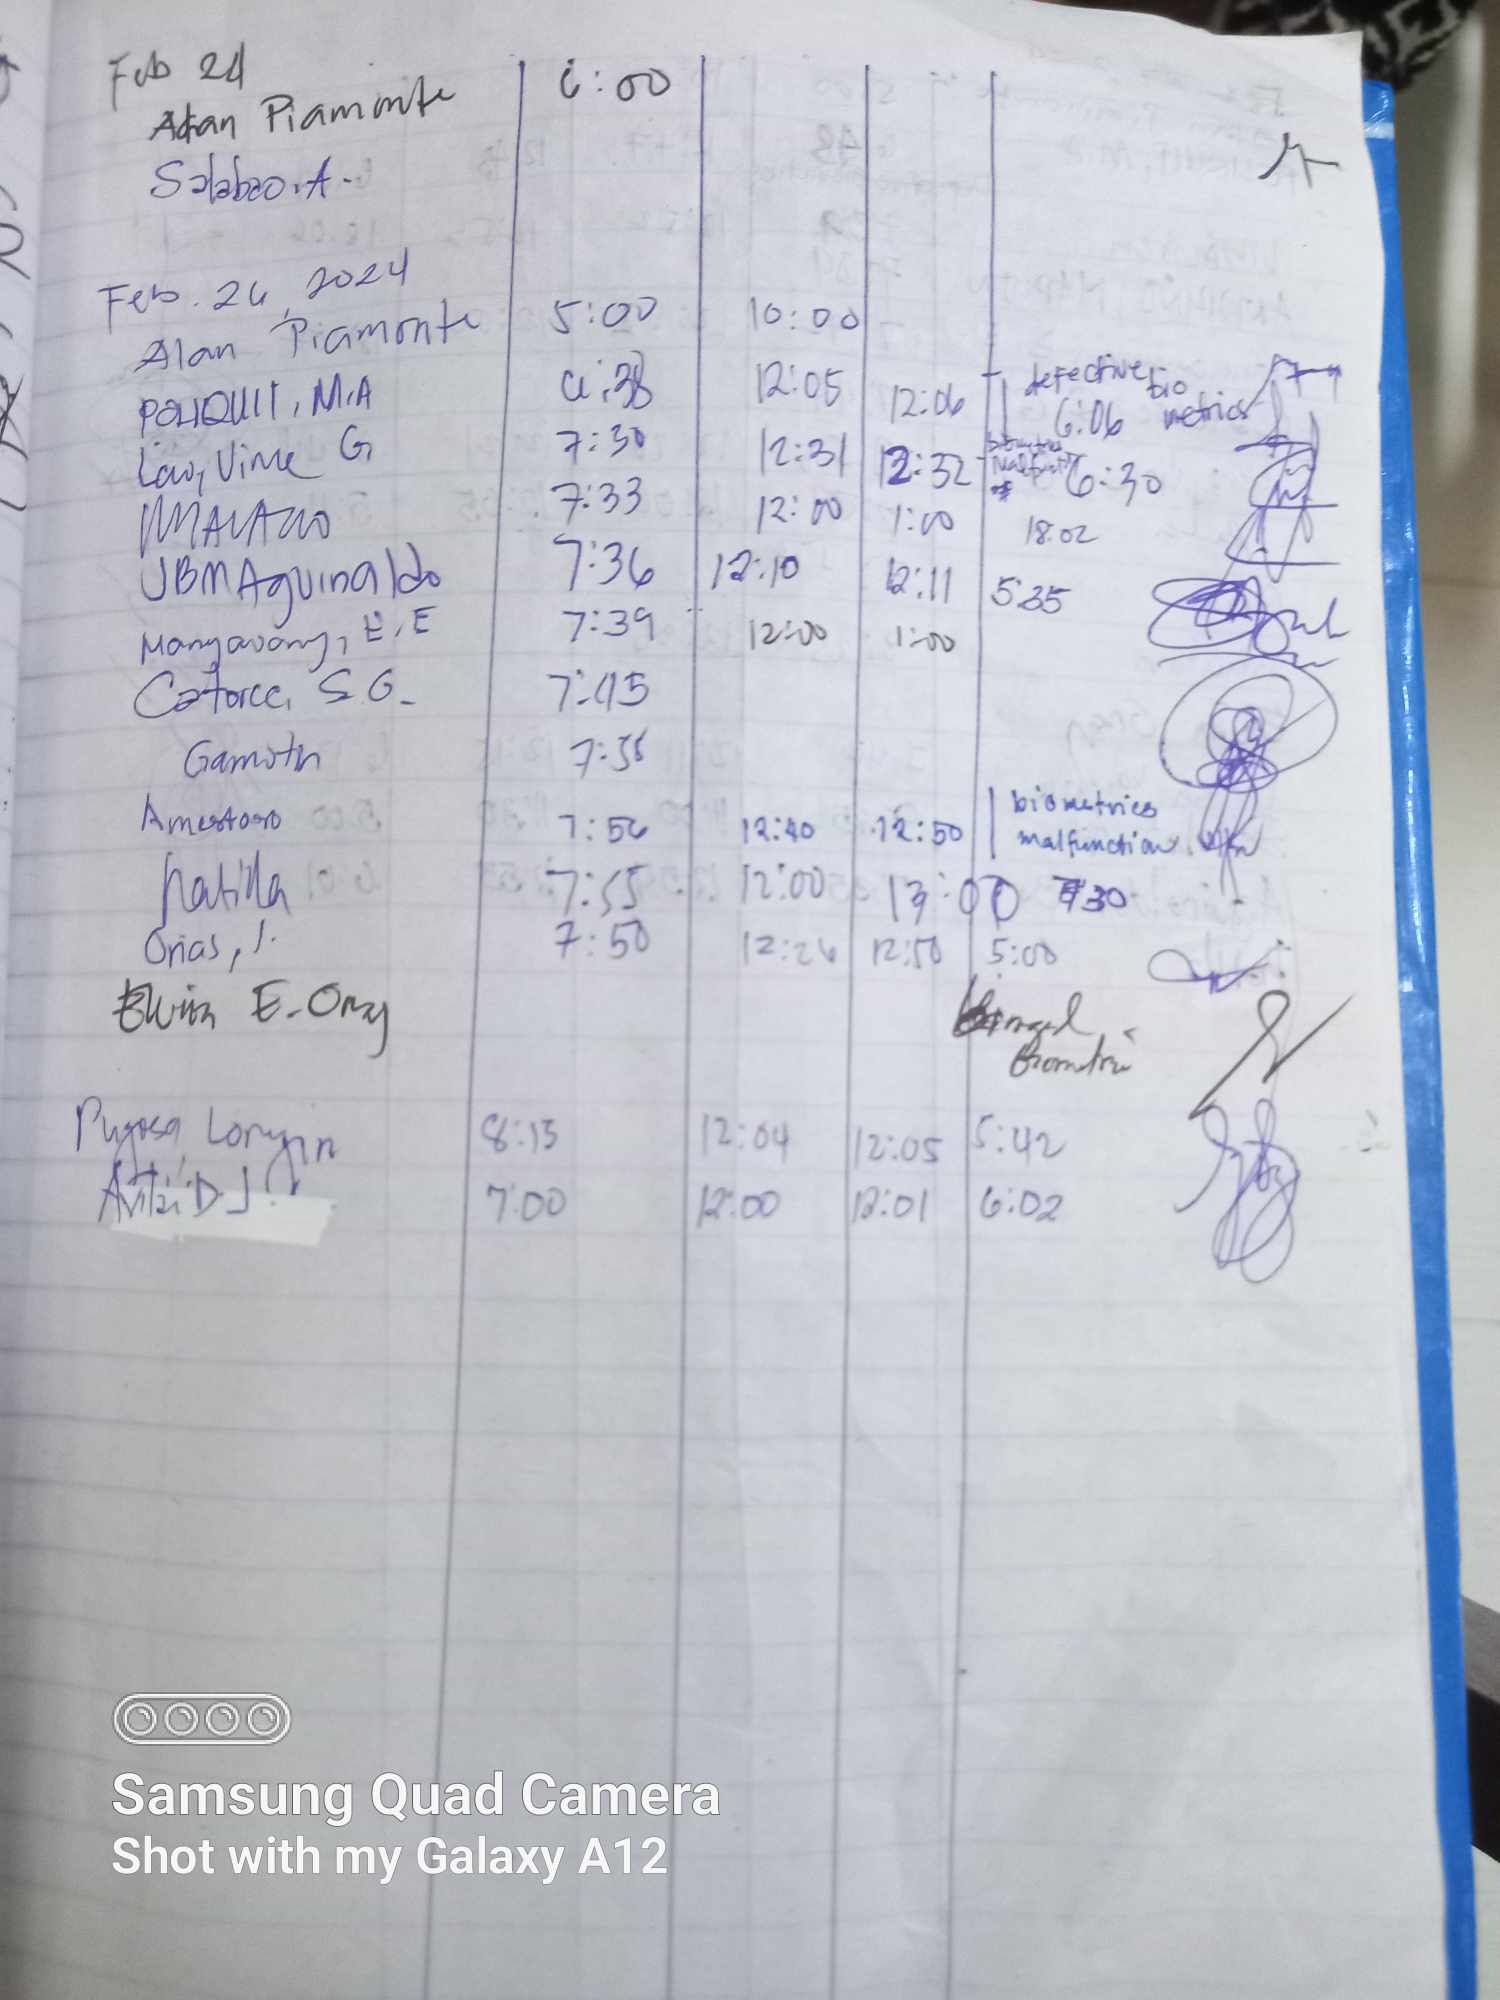 Feb 24
Alan Piamonte 6:00
Salabao, A.
Feb. 26, 2024
Alan Piamonte 5:00 10:00
POLIQUIT, M.A 6:38 12:05 12:06 defective bio metrics 6:06
Law, Vime G 7:30 12:31 12:32 6:30
7:33 12:00 1:00 18:02
JBMAguinaldo 7:36 12:10 12:11 5:35
Mangavang, E.E 7:39 12:00 1:00
Catorce, S.G. 7:45
Gamotn 7:55
Amestoso 7:56 12:40 12:50 biometrics malfunction
7:55 12:00 13:00 30
Orias, J. 7:50 12:26 12:50 5:00
Elvira E. Ony
Pugosa, Longin 8:15 12:04 12:05 5:42
D.J. 7:00 12:00 12:01 6:02
Samsung Quad Camera
Shot with my Galaxy A12